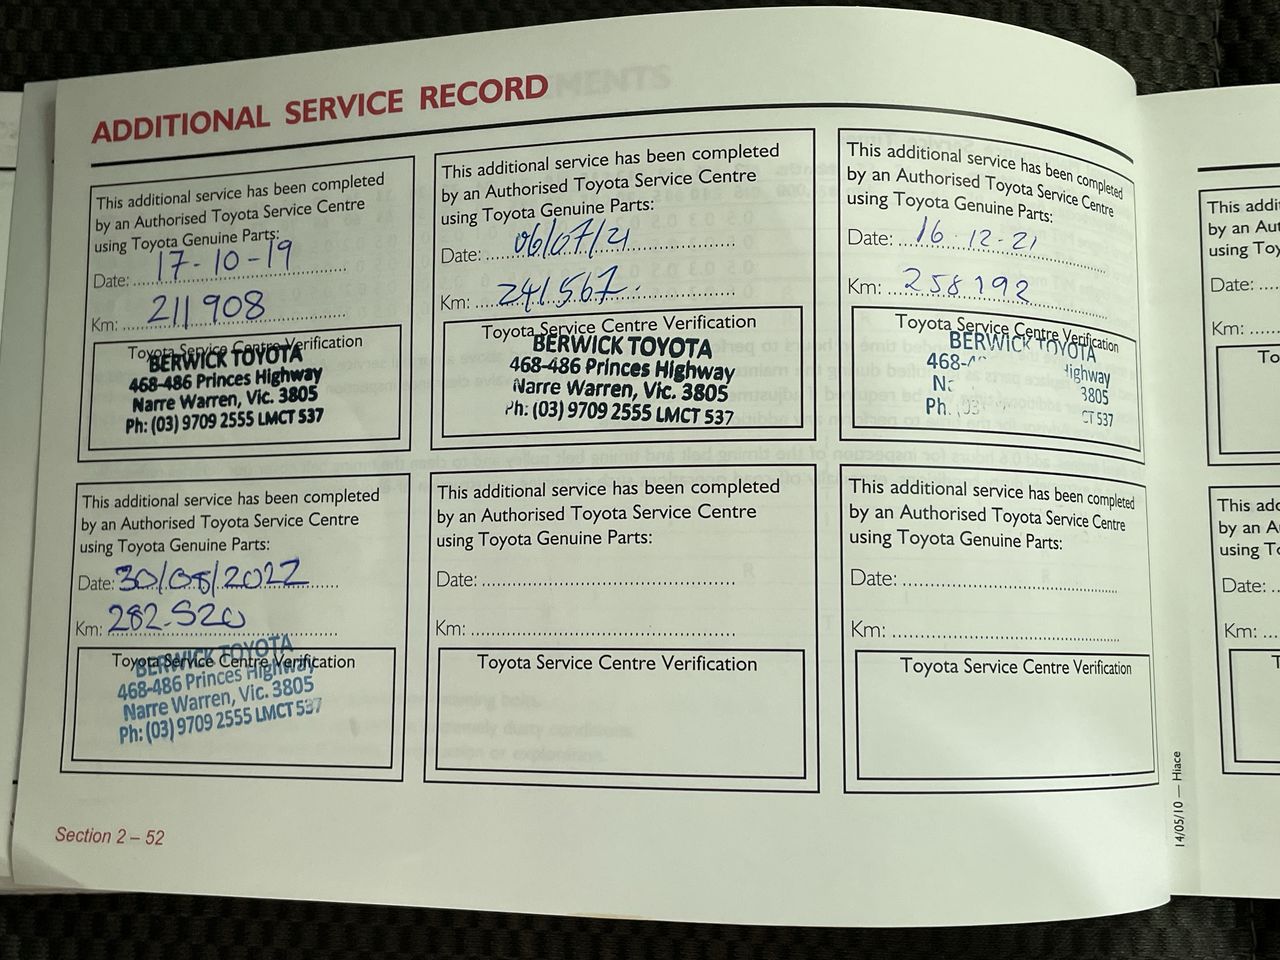 ADDITIONAL SERVICE RECORD
This additional service has been completed
by an Authorised Toyota Service Centre
using Toyota Genuine Parts:
Date: 17-10-19
Km: 211 908
Toyota Service Centre Verification
BERWICK TOYOTA
468-486 Princes Highway
Narre Warren, Vic. 3805
Ph: (03) 9709 2555 LMCT 537
This additional service has been completed
by an Authorised Toyota Service Centre
using Toyota Genuine Parts:
Date: 06/07/21
Km: 241,567.
Toyota Service Centre Verification
BERWICK TOYOTA
468-486 Princes Highway
Narre Warren, Vic. 3805
Ph: (03) 9709 2555 LMCT 537
This additional service has been completed
by an Authorised Toyota Service Centre
using Toyota Genuine Parts:
Date: 16-12-21
Km: 258192
Toyota Service Centre Verification
BERWICK TOYOTA
3805
Ph. 537
This additional service has been completed
by an Authorised Toyota Service Centre
using Toyota Genuine Parts:
Date: 30/08/2022
Km: 282-520
Toyota Service Centre Verification
BERWICK TOYOTA
468-486 Princes Highway
Narre Warren, Vic. 3805
Ph: (03) 9709 2555 LMCT 537
This additional service has been completed
by an Authorised Toyota Service Centre
using Toyota Genuine Parts:
Date:
Km:
Toyota Service Centre Verification
This additional service has been completed
by an Authorised Toyota Service Centre
using Toyota Genuine Parts:
Date:
Km:
Toyota Service Centre Verification
Section 2 – 52
14/05/10 — Hiace
This
by an
using
Date:
Km:
This
by an
using
Date:
Km: